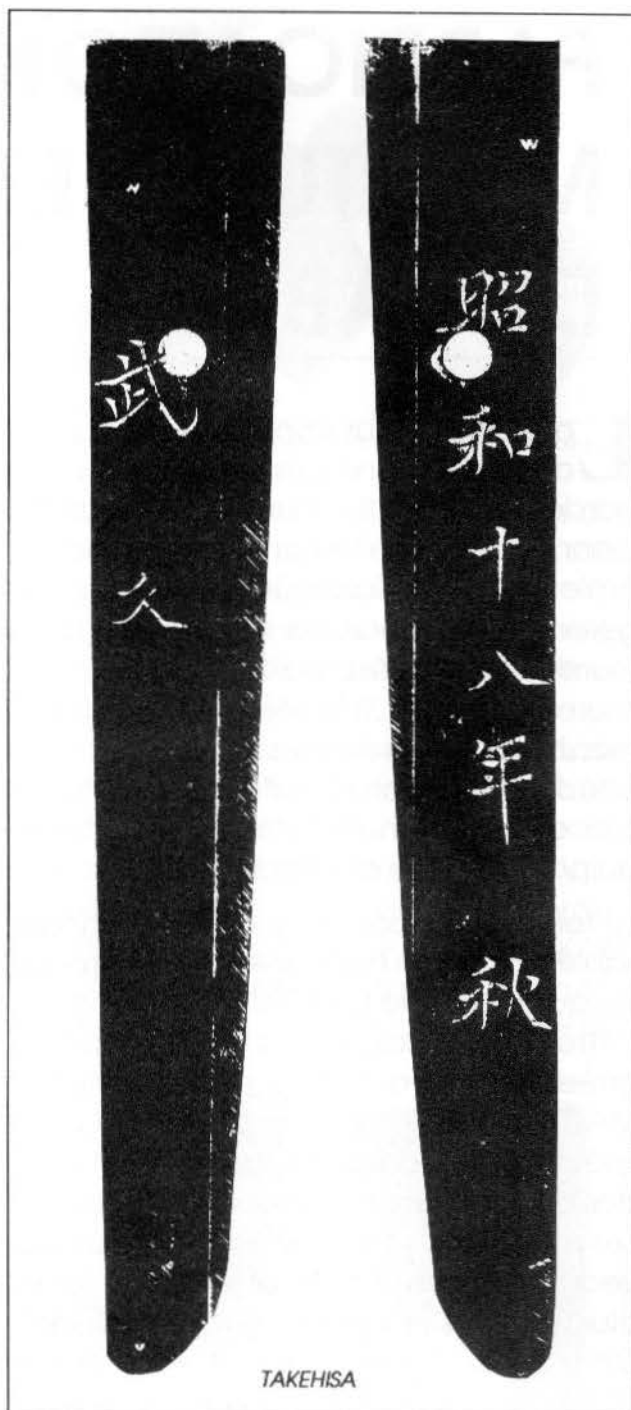 武久
昭和十八年秋
W
TAKEHISA